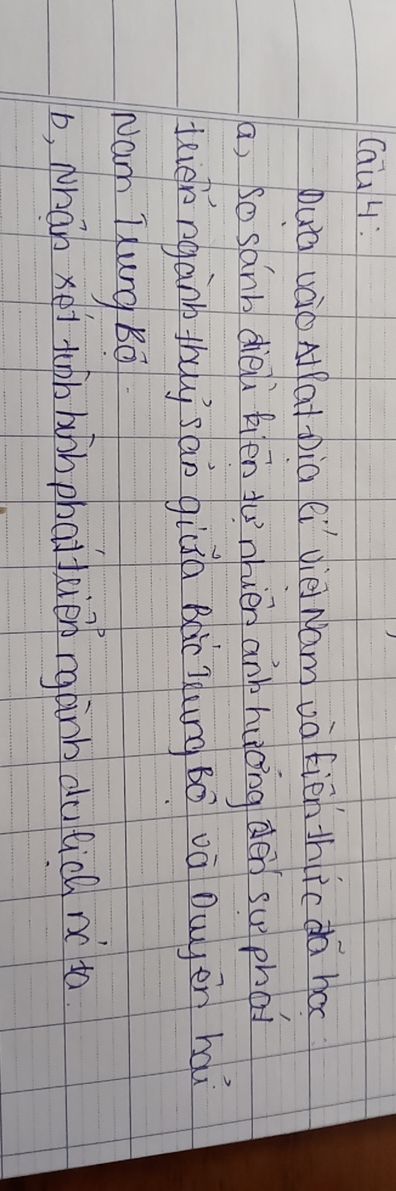 Câu 4:
Dựa vào Atlat Địa lí Việt Nam và kiến thức đã học:
a, So sánh điều kiện tự nhiên ảnh hưởng đến sự phát
triển ngành thuỷ sản giữa Bắc Trung Bộ và Duyên hải
Nam Trung Bộ.
b, Nhận xét tình hình phát triển ngành du lịch nc ta.